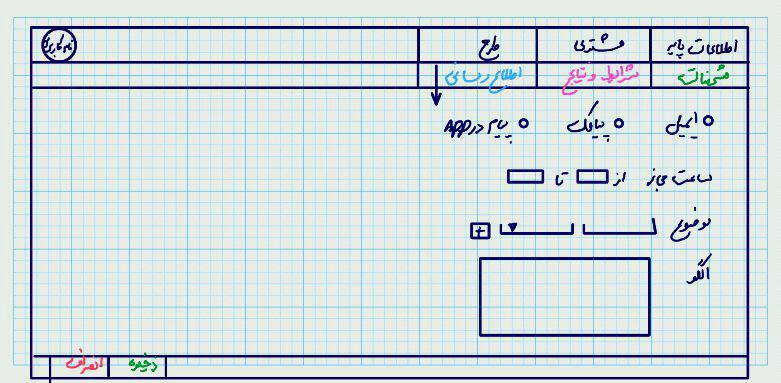 اطلاعات پایه مشتری طرح نام کاربری
مشخصات شرایط و نتایج اطلاع رسانی
ایمیل پیامک پیام در APP
ساعت مجاز از تا
موضوع +
الگو
ذخیره انصراف